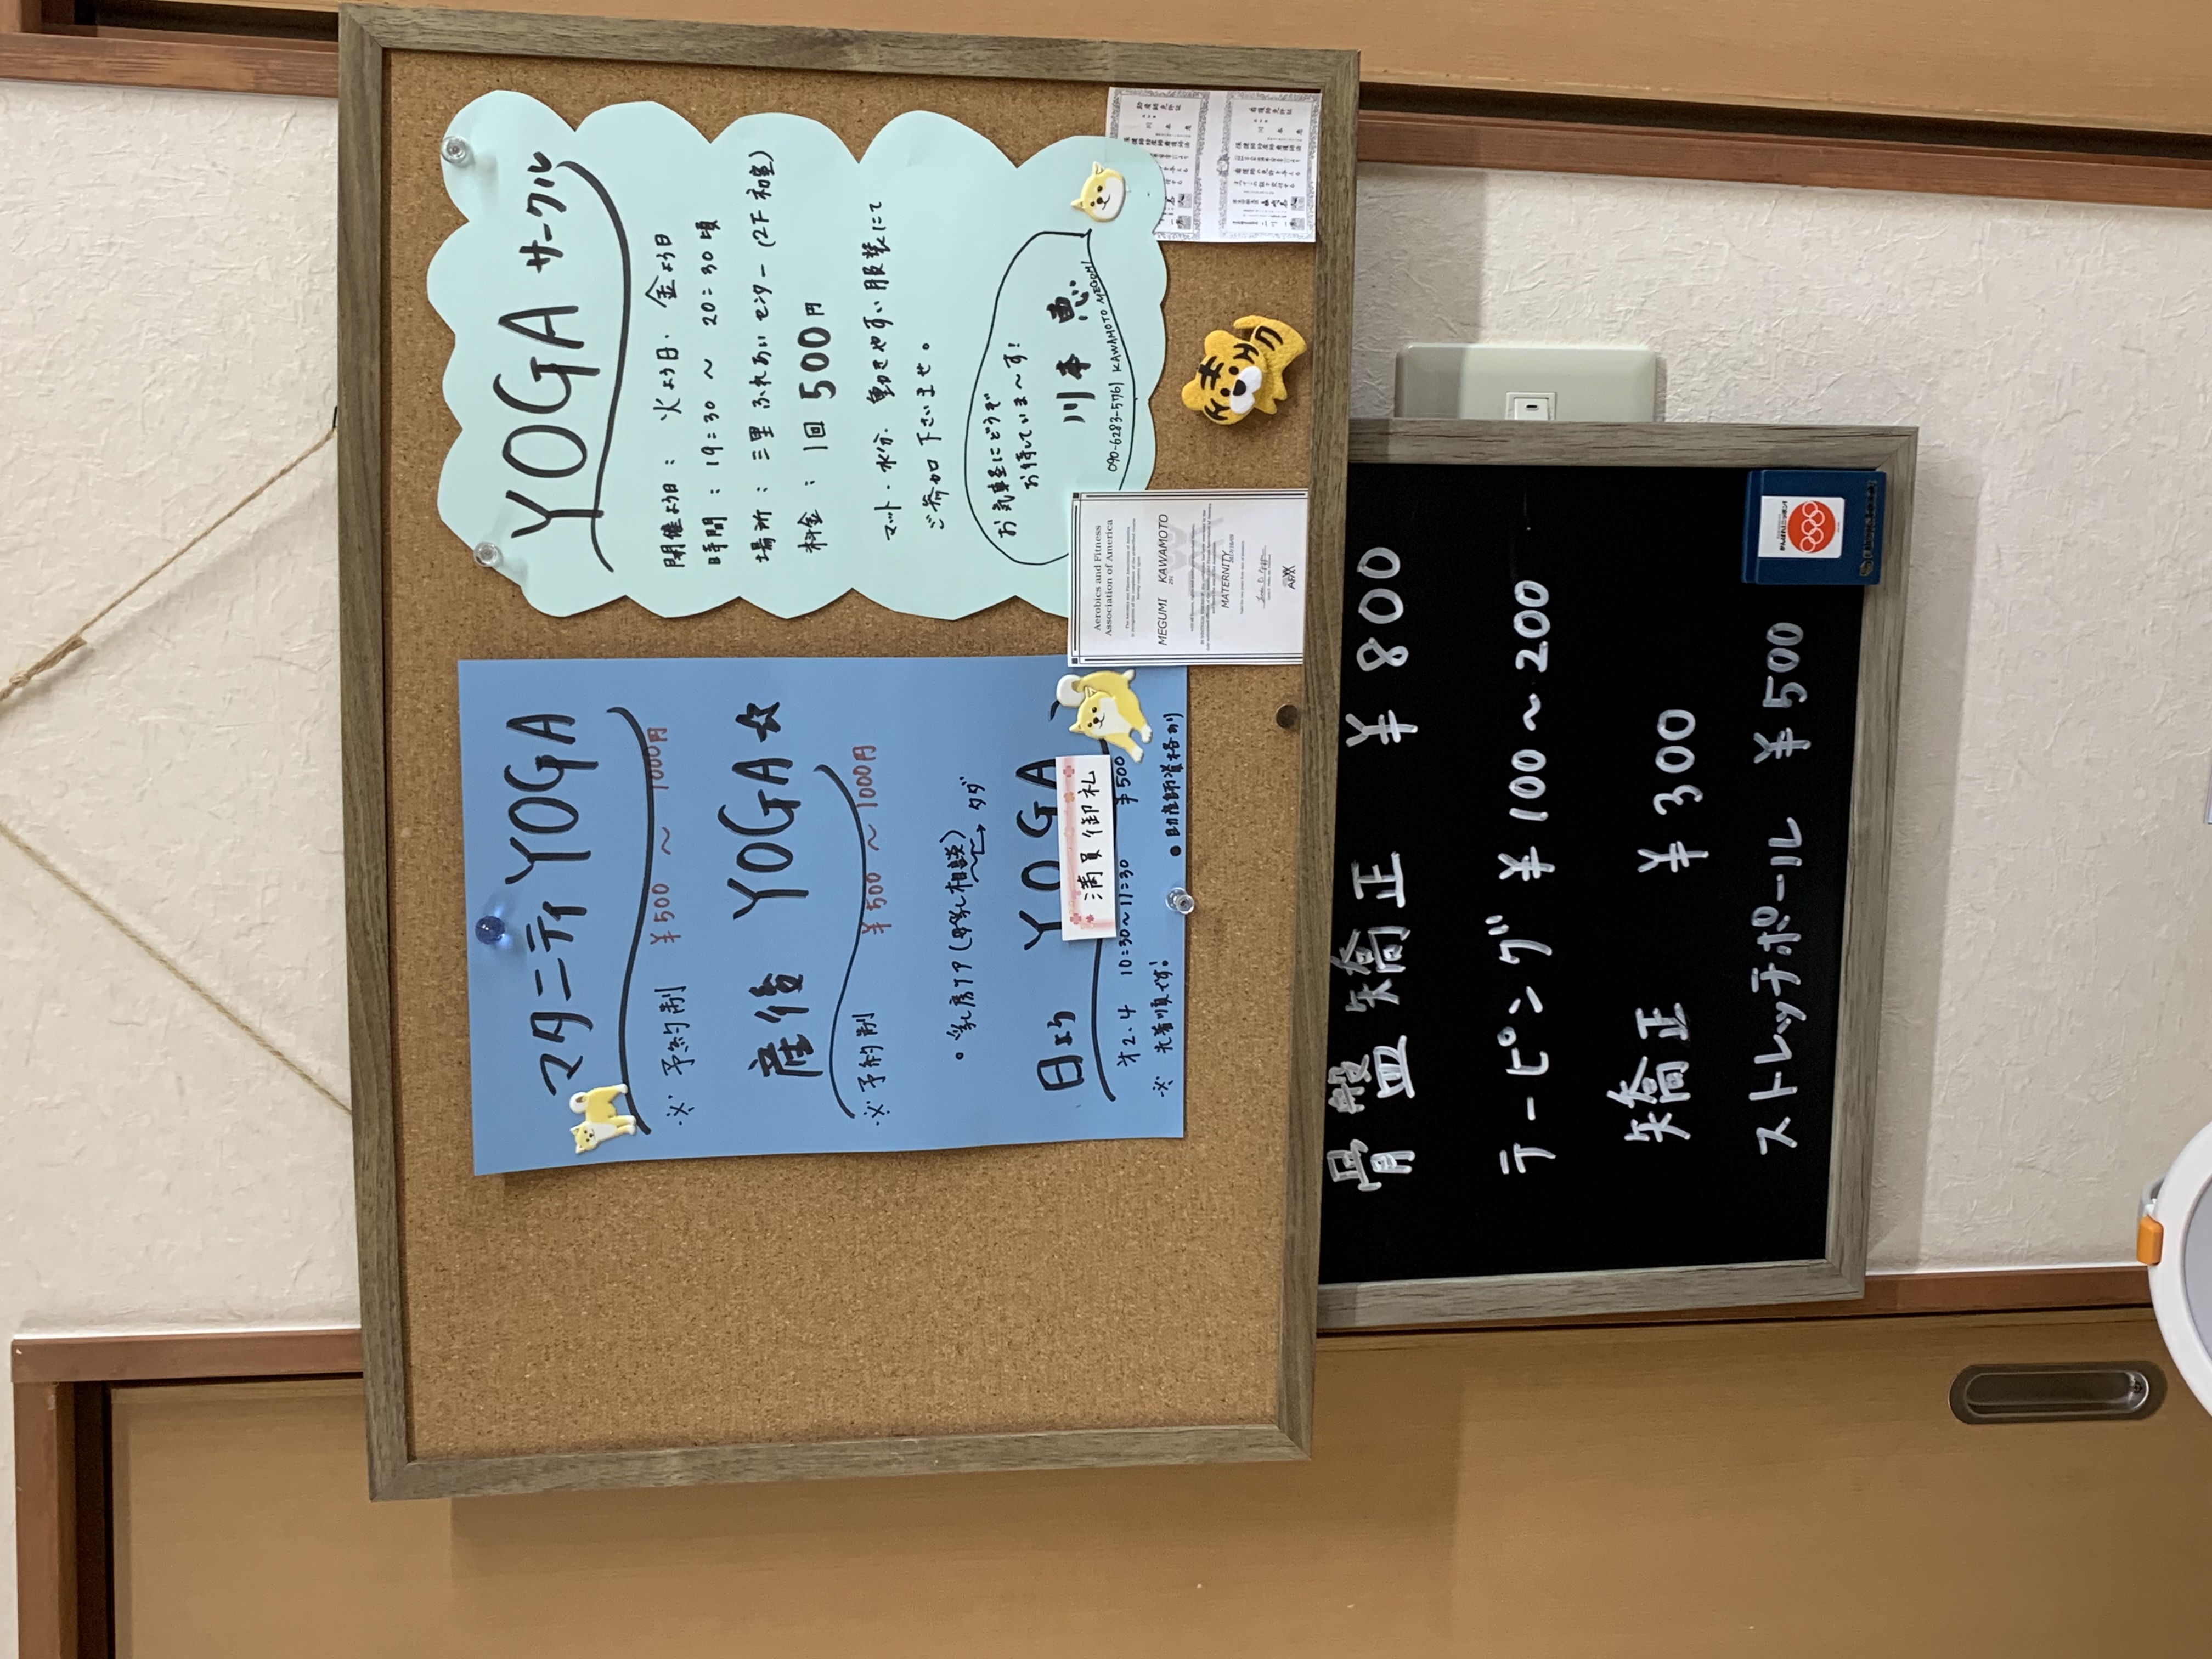 YOGA サークル
開催よう日： 火よう日、金よう日
時間： 19:30 〜 20:30頃
場所： 三里ふれあいセンター (2F 和室)
料金： 1回 500円
マット・水分、動きやすい服装にて
ご参加下さいませ。
お気軽にどうぞ
お待ちしていま〜す!
川本 恵
090-6283-5761 KAWAMOTO MEGUMI
Aerobics and Fitness
Association of America
MEGUMI KAWAMOTO
MATERNITY
AFAA
マタニティ YOGA
※ 予約制 ¥500 〜 1000円
産後 YOGA ☆
※予約制 ¥500 〜 1000円
• 乳房ケア (母乳相談) → タダ
日よう YOGA
満員御礼
第2.4 10:30〜11:30 ¥500
※ 先着順です! • 助産師資格有り
骨盤矯正 ¥800
テーピング ¥100〜200
矯正 ¥300
ストレッチポール ¥500